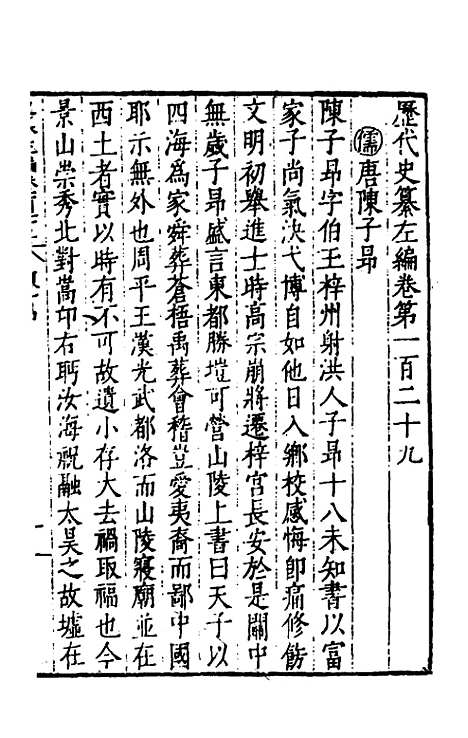 歷代史纂左編卷第一百二十九
儒唐陳子昻
陳子昻字伯王梓州射洪人子昻十八未知書以富
家子尚氣決弋博自如他日入鄉校感悔卽痛修飭
文明初舉進士時高宗崩將遷梓宮長安於是關中
無歲子昻盛言東都勝塏可營山陵上書曰天子以
四海爲家舜葬蒼梧禹葬會稽豈愛夷裔而鄙中國
耶示無外也周平王漢光武都洛而山陵寢廟並在
西土者實以時有不可故遺小存大去禍取福也今
景山崇秀北對嵩卭右眄汝海祝融太昊之故墟在